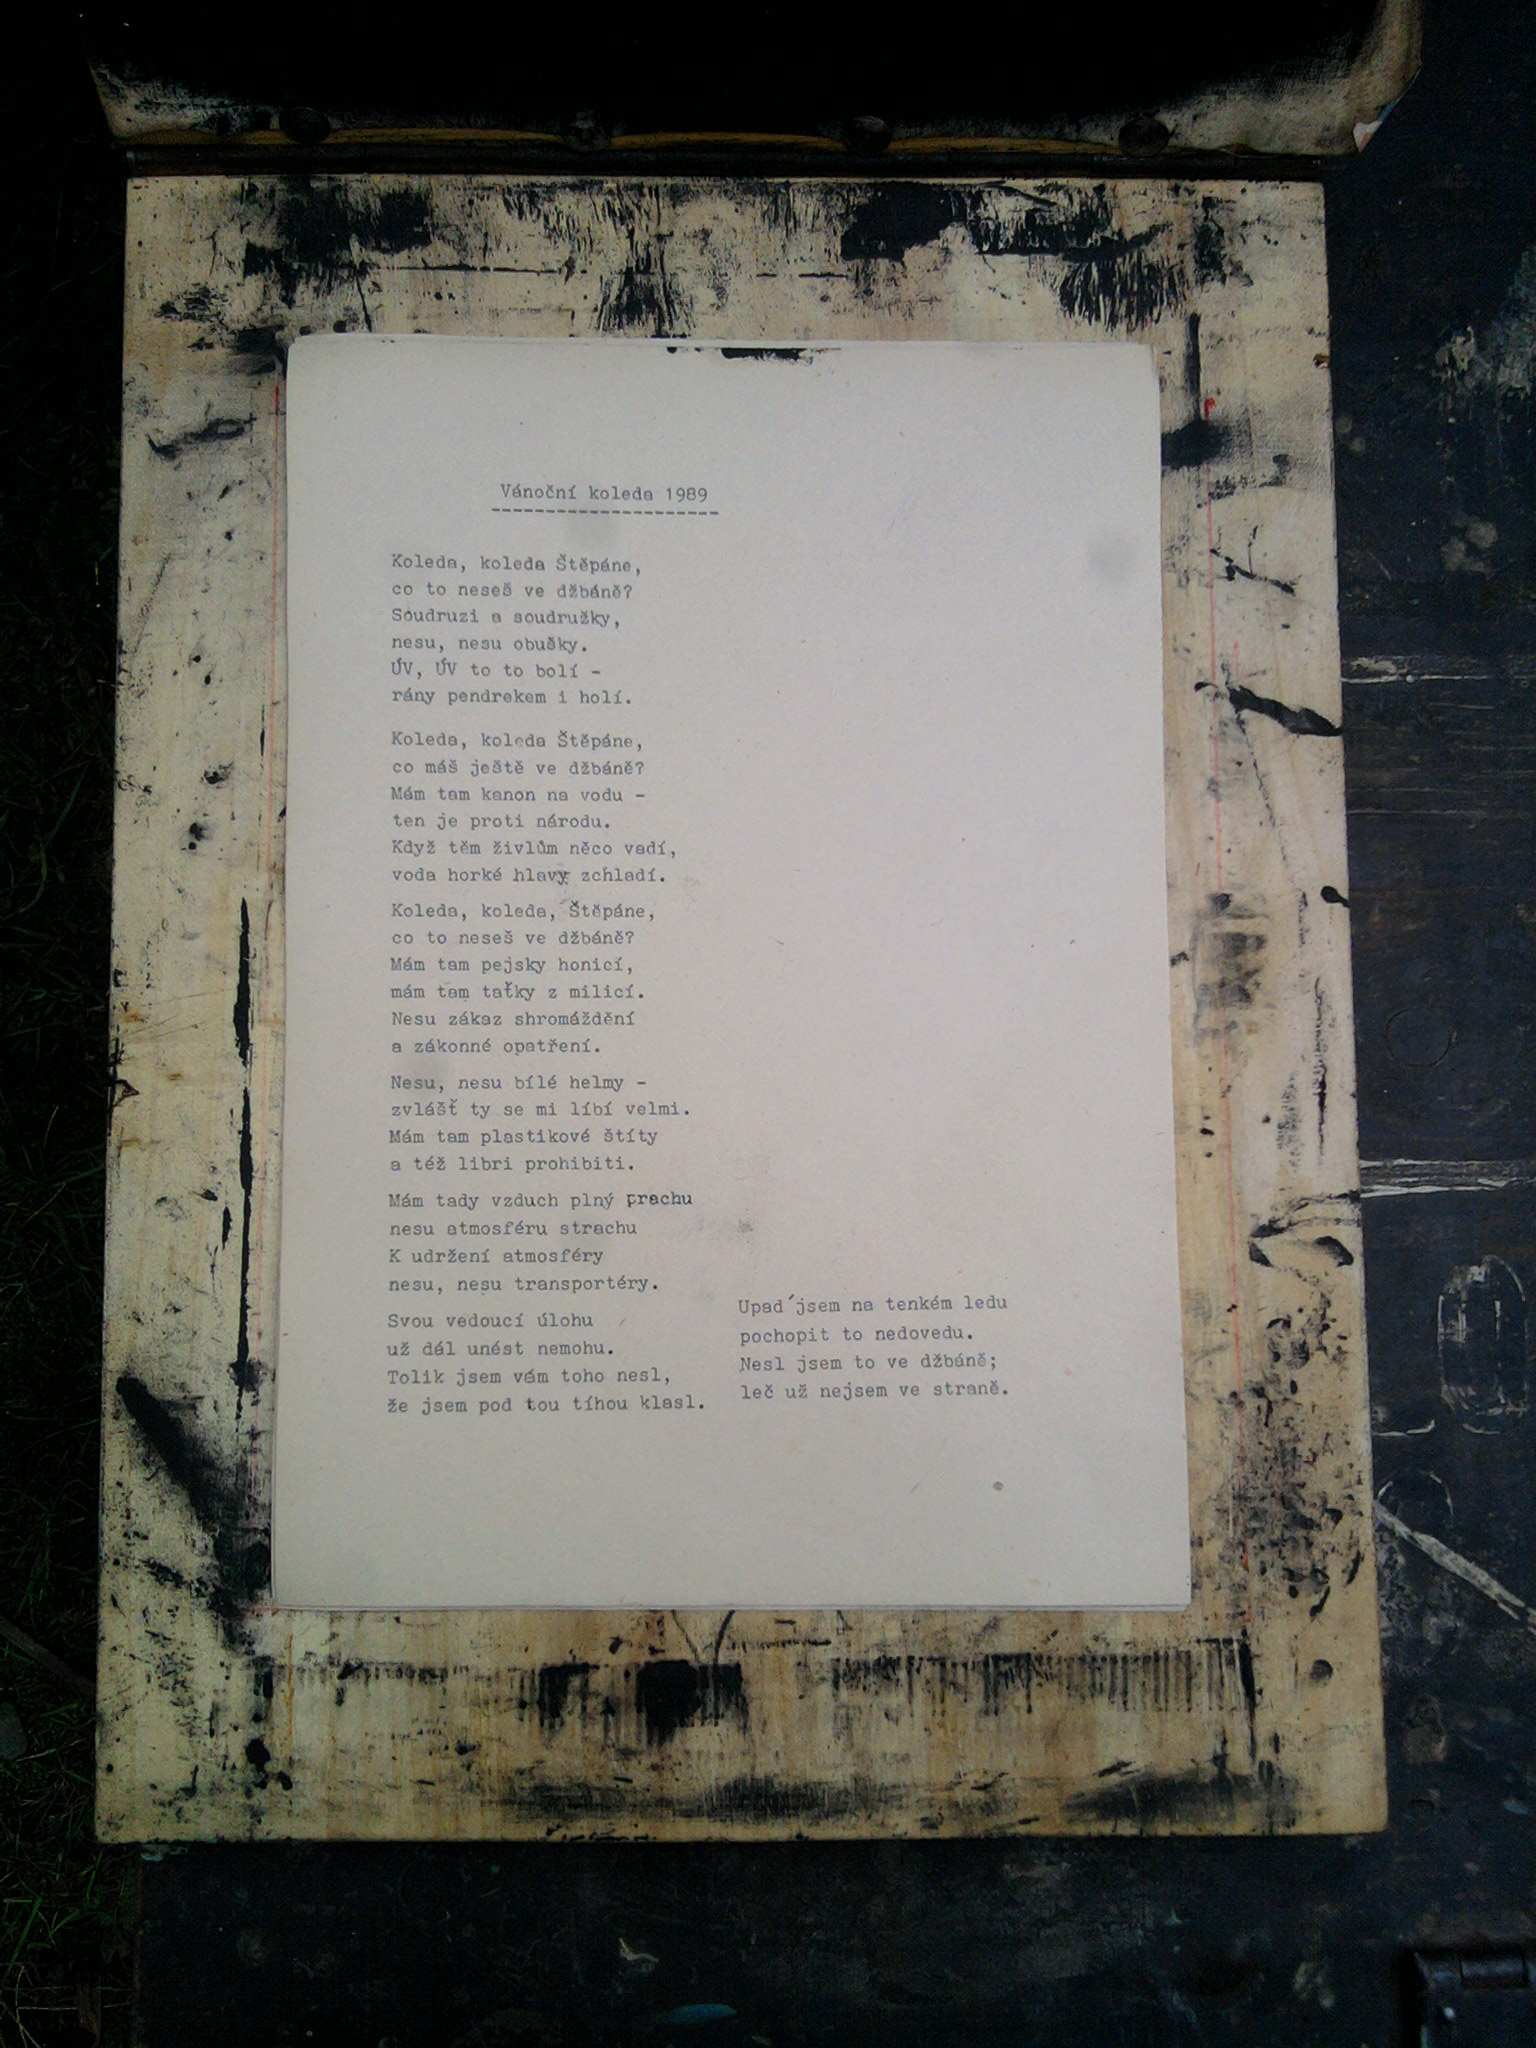 Vánoční koleda 1989
Koleda, koleda Štěpáne,
co to neseš ve džbáně?
Soudruzi a soudružky,
nesu, nesu obušky.
ÚV, ÚV to to bolí -
rány pendrekem i holí.
Koleda, koleda Štěpáne,
co máš ještě ve džbáně?
Mám tam kanon na vodu -
ten je proti národu.
Když těm živlům něco vadí,
voda horké hlavy zchladí.
Koleda, koleda, Štěpáne,
co to neseš ve džbáně?
Mám tam pejsky honicí,
mám tam taťky z milicí.
Nesu zákaz shromáždění
a zákonné opatření.
Nesu, nesu bílé helmy -
zvlášť ty se mi líbí velmi.
Mám tam plastikové štíty
a též libri prohibiti.
Mám tady vzduch plný prachu
nesu atmosféru strachu
K udržení atmosféry
nesu, nesu transportéry.
Svou vedoucí úlohu
už dál unést nemohu.
Tolik jsem vám toho nesl,
že jsem pod tou tíhou klasl.
Upad´jsem na tenkém ledu
pochopit to nedovedu.
Nesl jsem to ve džbáně;
leč už nejsem ve straně.